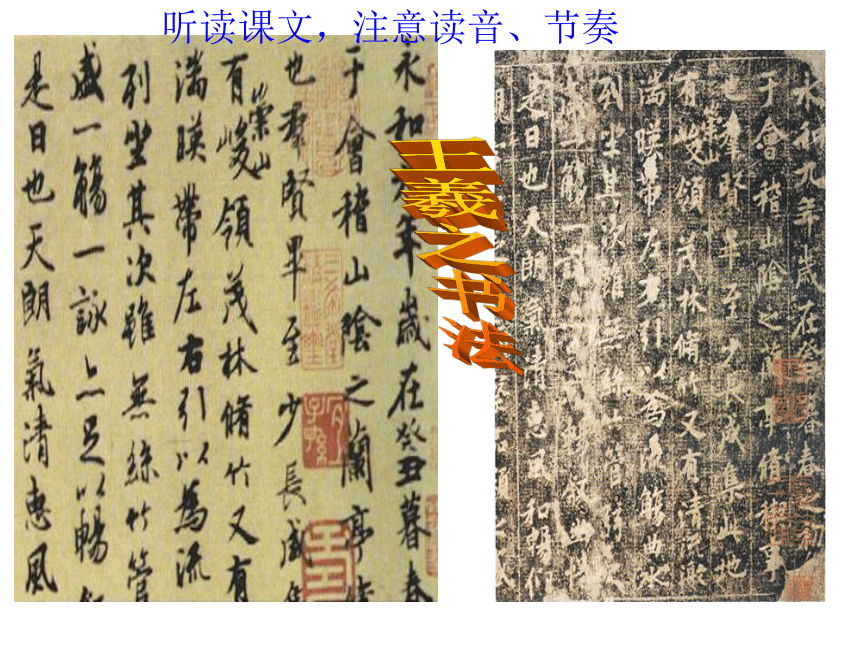 听读课文，注意读音、节奏
永和九年歲在癸丑暮春
于會稽山陰之蘭亭
也羣賢畢至少長咸集
有崇山峻領茂林脩竹又有
湍暎帶左右引以為流
列坐其次雖無絲竹管
盛一觴一詠亦足以暢
是日也天朗氣清惠風
王羲之书法
永和九年歲在癸暮春之初
于會稽山陰之蘭亭脩稧事
也羣賢畢至少長咸集此地
有崇山峻領茂林脩竹又有清流激
湍暎帶左右引以為流觴曲水
列坐其次雖無絲竹管弦之
一觴一詠亦足以暢叙幽情
是日也天朗氣清惠風和暢仰